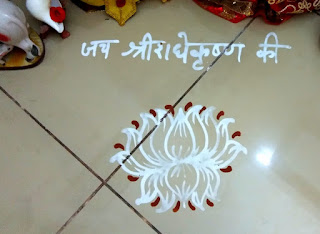 जय श्रीराधेकृष्ण की